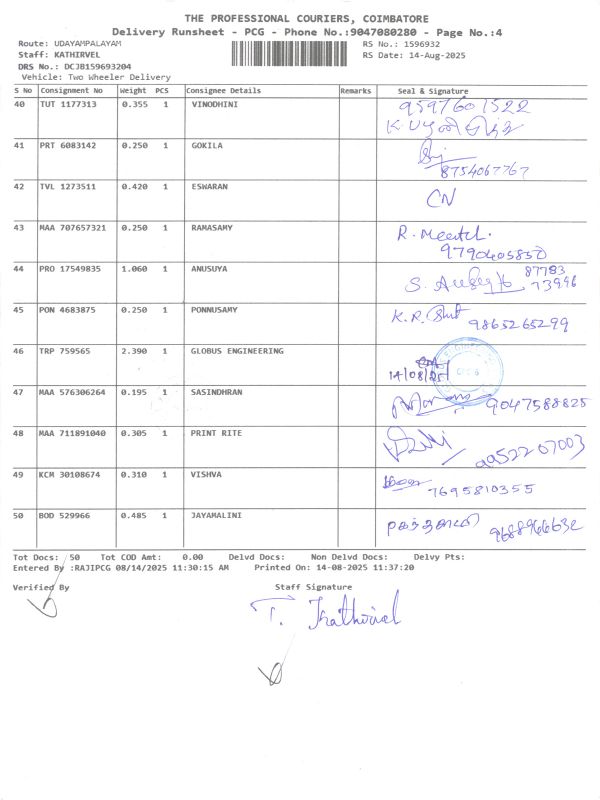 THE PROFESSIONAL COURIERS, COIMBATORE
Delivery Runsheet - PCG - Phone No.:9047080280 - Page No.:4
Route: UDAYAMPALAYAM RS No.: 1596932
Staff: KATHIRVEL RS Date: 14-Aug-2025
DRS No.: DCJB159693204
Vehicle: Two Wheeler Delivery
S No Consignment No Weight PCS Consignee Details Remarks Seal & Signature
40 TUT 1177313 0.355 1 VINODHINI 9597601522
K.
41 PRT 6083142 0.250 1 GOKILA
8754067767
42 TVL 1273511 0.420 1 ESWARAN CN
43 MAA 707657321 0.250 1 RAMASAMY R.
9790405850
44 PRO 17549835 1.060 1 ANUSUYA S. 87783
73996
45 PON 4683875 0.250 1 PONNUSAMY K.R. 9865265299
46 TRP 759565 2.390 1 GLOBUS ENGINEERING
14/08/25
47 MAA 576306264 0.195 1 SASINDHRAN 9047588825
48 MAA 711891040 0.305 1 PRINT RITE
49 KCM 30108674 0.310 1 VISHVA 7695810355
50 BOD 529966 0.485 1 JAYAMALINI 9688966632
Tot Docs: 50 Tot COD Amt: 0.00 Delvd Docs: Non Delvd Docs: Delvy Pts:
Entered By :RAJIPCG 08/14/2025 11:30:15 AM Printed On: 14-08-2025 11:37:20
Verified By Staff Signature
T. Kathirvel